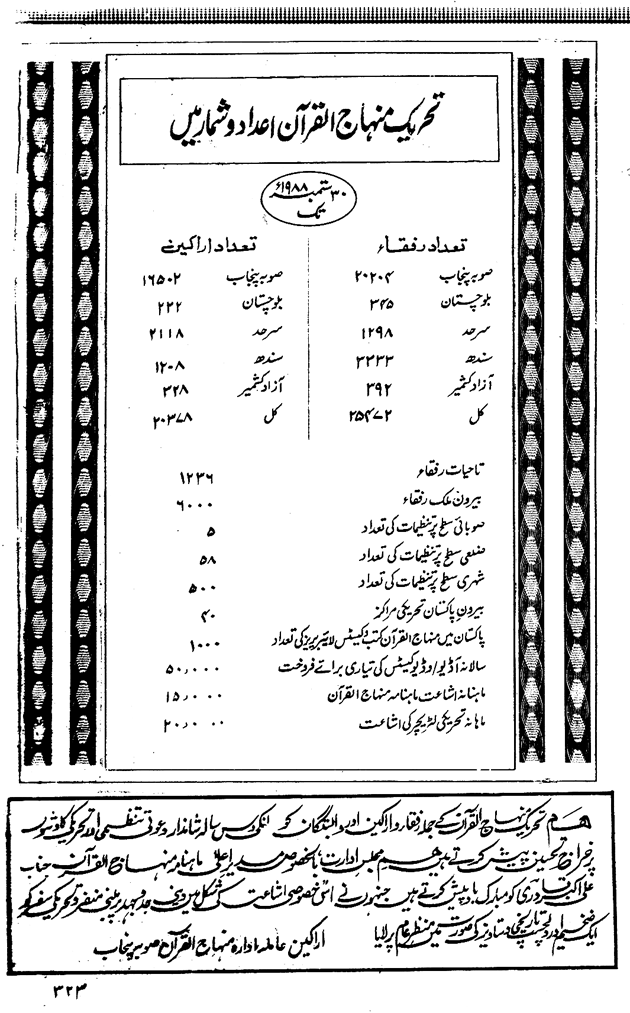 تحریک منہاج القرآن اعداد و شمار میں
۳۰ ستمبر ۱۹۸۸ء
تک
تعداد رفقاء
صوبہ پنجاب ۲۰۲۰۴
بلوچستان ۳۴۵
سرحد ۱۲۹۸
سندھ ۳۲۳۳
آزاد کشمیر ۳۹۲
کل ۲۵۴۷۲
تعداد اراکین
صوبہ پنجاب ۱۶۵۰۲
بلوچستان ۲۲۲
سرحد ۲۱۱۸
سندھ ۱۲۰۸
آزاد کشمیر ۳۲۸
کل ۲۰۳۷۸
تاحیات رفقاء ۱۲۳۶
بیرون ملک رفقاء ۶۰۰۰
صوبائی سطح پر تنظیمات کی تعداد ۵
ضلعی سطح پر تنظیمات کی تعداد ۵۸
شہری سطح پر تنظیمات کی تعداد ۵۰۰
بیرون پاکستان تحریکی مراکز ۴۰
پاکستان میں منہاج القرآن کتب و کیسٹس لائبریریز کی تعداد ۱۰۰۰
سالانہ آڈیو اوڈیو کیسٹس کی تیاری برائے فروخت ۵۰,۰۰۰
ماہنانہ اشاعت ماہنامہ منہاج القرآن ۱۵,۰۰۰
ماہانہ تحریکی لٹریچر کی اشاعت ۲۰,۰۰۰
ھم تحریک منہاج القرآن کے جملہ رفقاء و اراکین اور وابستگان کو انکی دس سالہ شاندار دعوتی تنظیمی اور تحریکی کاوشوں
پر خراج تحسین پیش کرتے ہیں ہم مجلس ادارت بالخصوص مدیر اعلیٰ ماہنامہ منہاج القرآن جناب
علی اکبر قادری کو مبارک باد پیش کرتے ہیں جنہوں نے اس خصوصی اشاعت کی شکل میں دینی جدوجہد پر مبنی منفرد تحریکی سفر کو
ایک ضخیم اور دلچسپ تاریخی دستاویز کی صورت میں منظر عام پر لایا
اراکین عاملہ ادارہ منہاج القرآن صوبہ پنجاب
۳۲۳